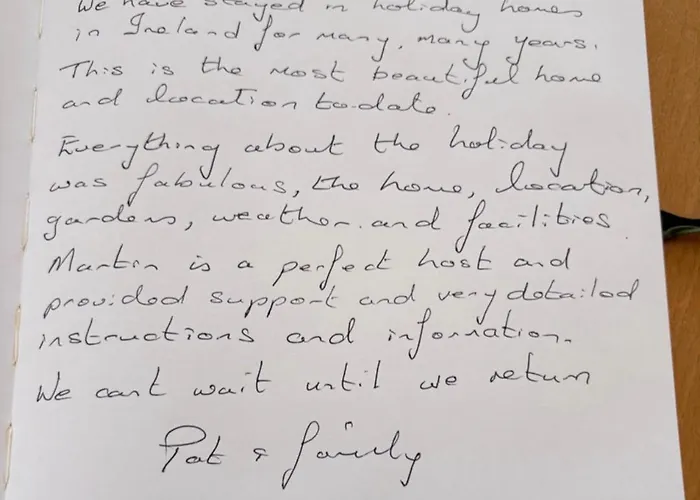 We have stayed in holiday homes
in Ireland for many, many years.
This is the most beautiful home
and location to-date.
Everything about the holiday
was fabulous, the home, location,
gardens, weather and facilities.
Martin is a perfect host and
provided support and very detailed
instructions and information.
We cant wait until we return
Pat & family